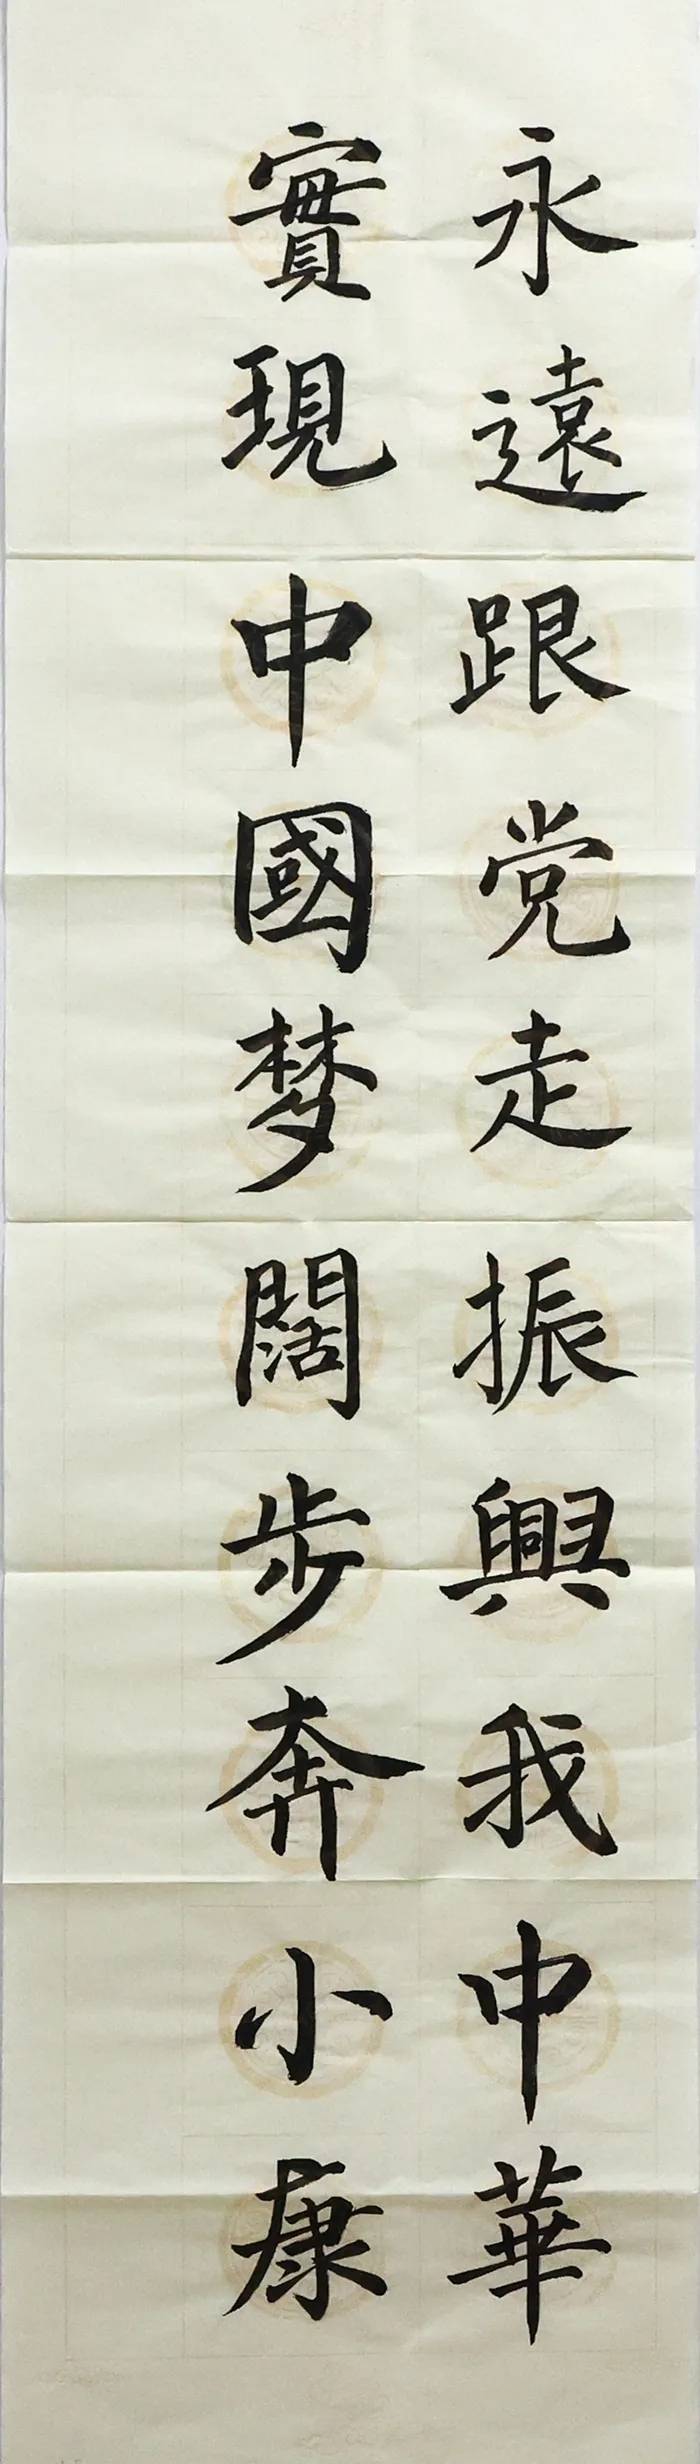 永遠跟党走振興我中華
實現中國梦闊步奔小康